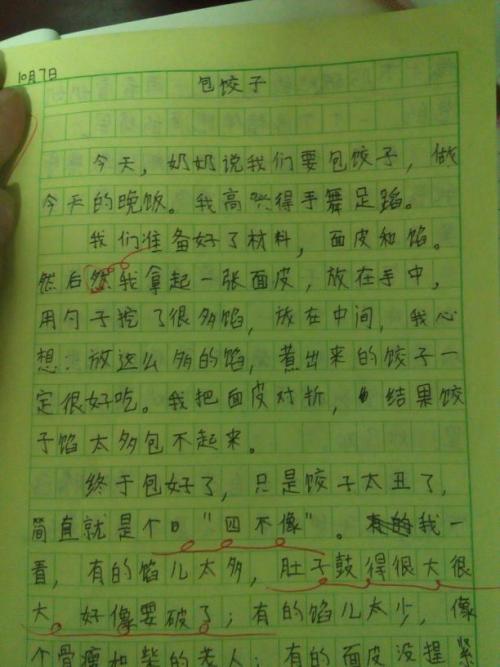 10月7日
包饺子
今天，奶奶说我们要包饺子，做
今天的晚饭。我高兴得手舞足蹈。
我们准备好了材料，面皮和馅。
然后我拿起一张面皮，放在手中，
用勺子挖了很多馅，放在中间，我心
想：放这么多的馅，煮出来的饺子一
定很好吃。我把面皮对折，结果饺
子馅太多包不起来。
终于包好了，只是饺子太丑了，
简直就是个“四不像”。我一
看，有的馅儿太多，肚子鼓得很大很
大，好像要破了；有的馅儿太少，像
个骨瘦如柴的老人；有的面皮没捏紧